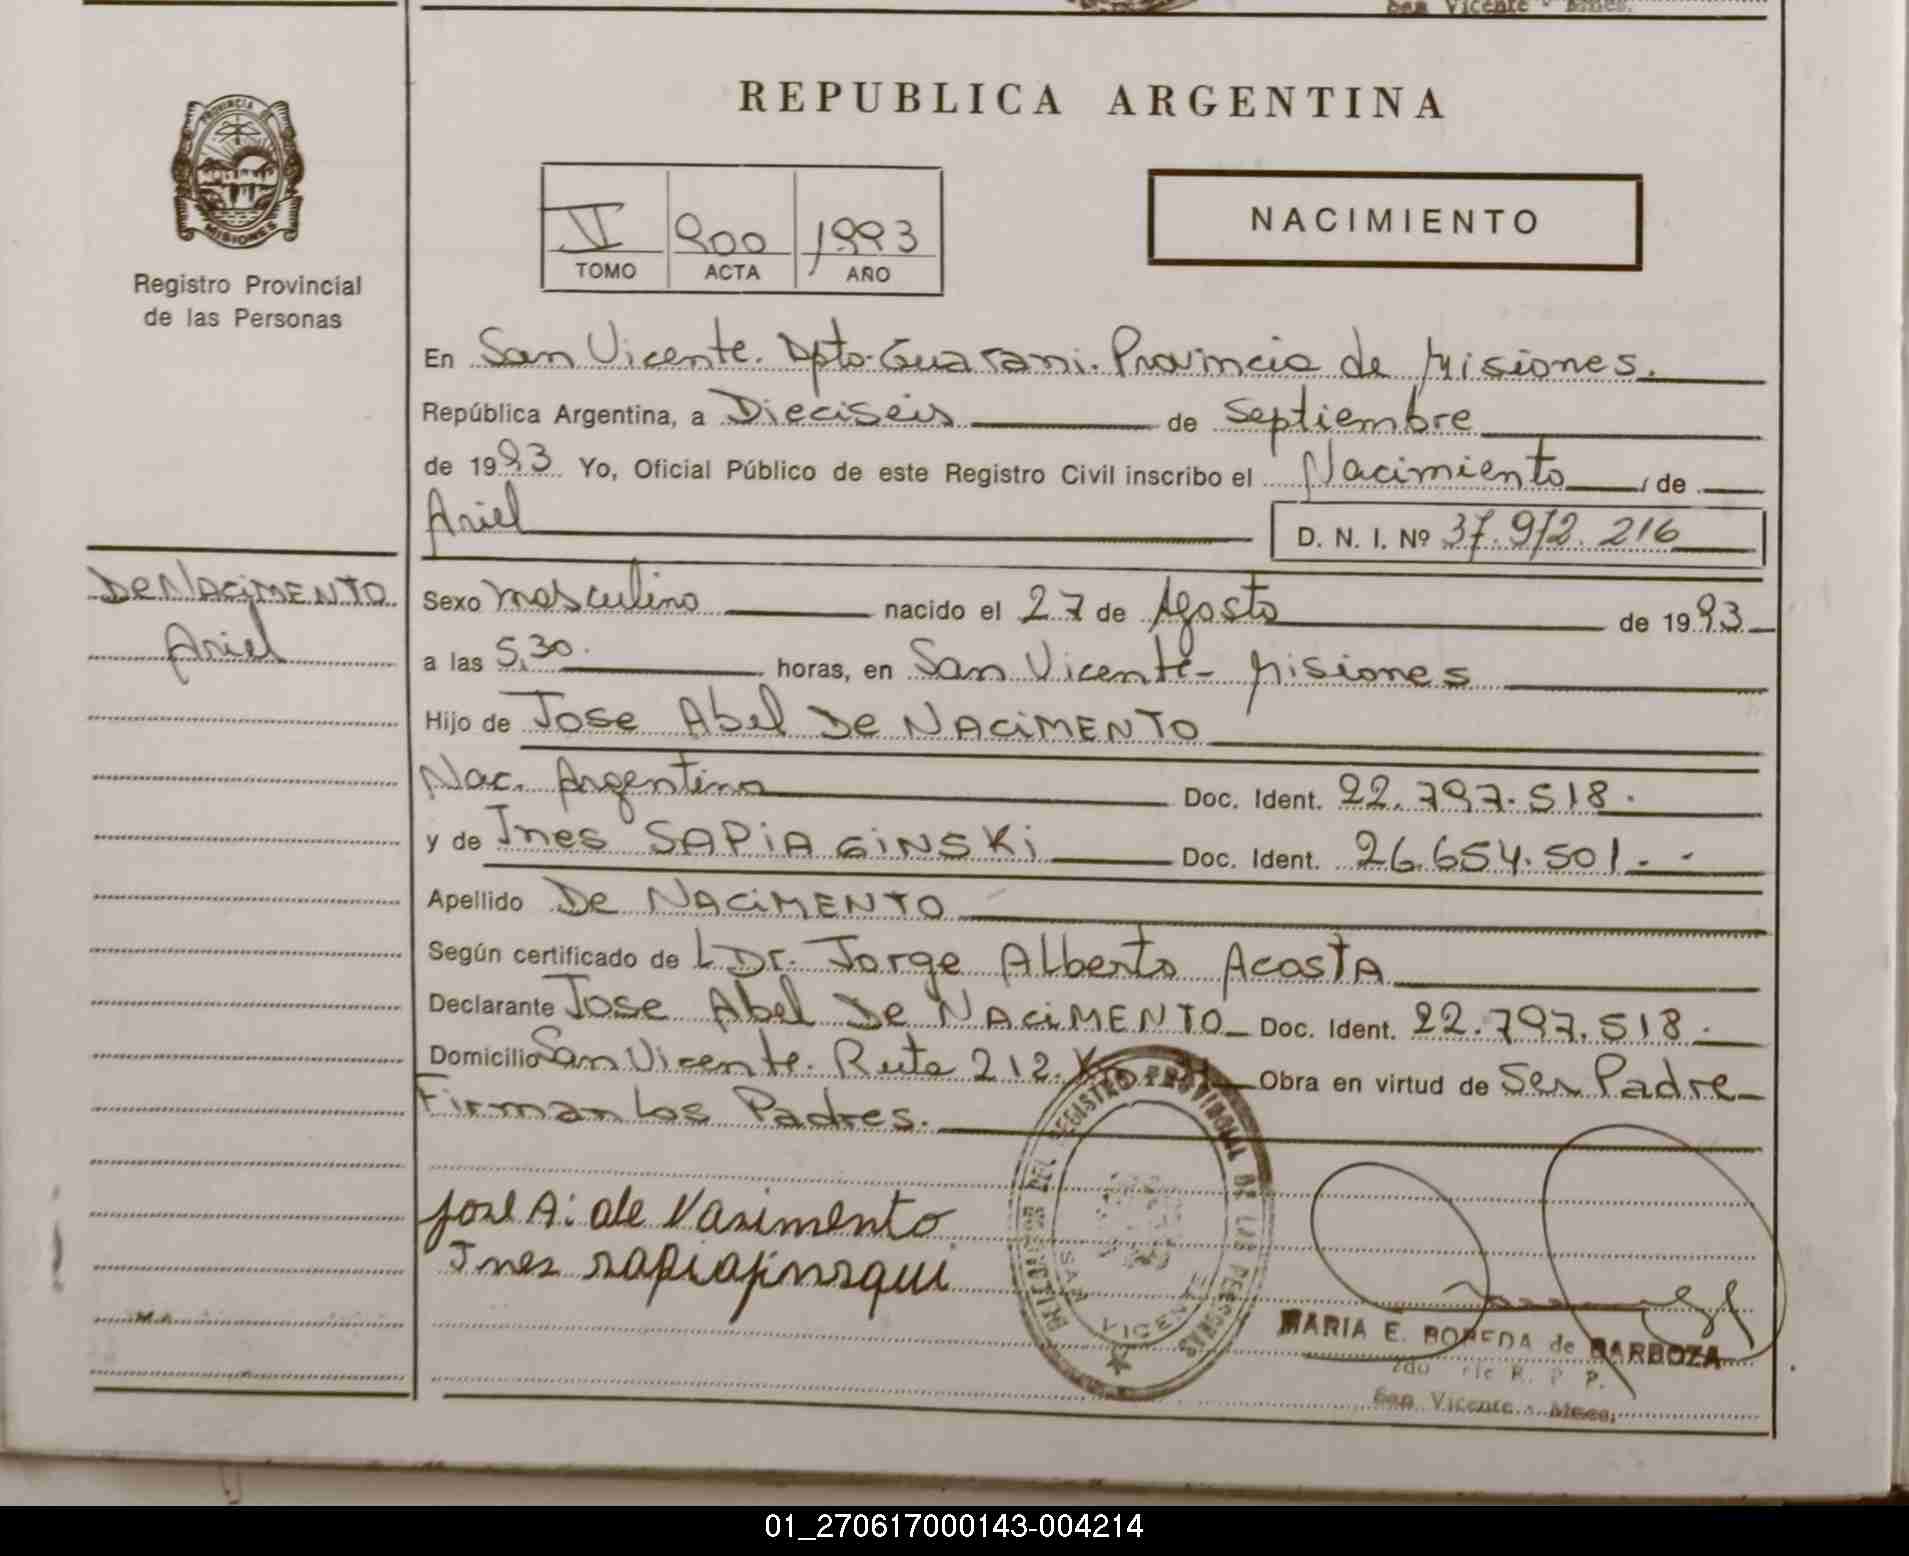 San Vicente - Mnes.
REPUBLICA ARGENTINA
PROVINCIA DE
MISIONES
Registro Provincial
de las Personas
V 900 1993
TOMO ACTA AÑO
NACIMIENTO
En San Vicente. Dpto. Guarani. Provincia de Misiones.
República Argentina, a Dieciseis de Septiembre
de 1993 Yo, Oficial Público de este Registro Civil inscribo el Nacimiento, de
Ariel
D. N. I. Nº 37.912.216
De NACiMENTO
Ariel
Sexo masculino nacido el 27 de Agosto de 1993
a las 5,30. horas, en San Vicente - Misiones
Hijo de Jose Abel De NACiMENTO
Nac. Argentina Doc. Ident. 22.797.518.
y de Ines SAPiAGiNSKi Doc. Ident. 26.654.501.-
Apellido De NACiMENTO
Según certificado de L Dr. Jorge Alberto Acosta
Declarante Jose Abel De NACiMENTO Doc. Ident. 22.797.518.
Domicilio San Vicente. Ruta 212. Obra en virtud de Ser Padre
Firman Los Padres.
Jose A: de Nasimento
Ines sapiajinsqui
DEL REGISTRO PROVINCIAL DE LAS PERSONAS
SAN VICENTE
MARIA E. de BARBOZA
R. P. P.
San Vicente - Mnes.
01_270617000143-004214